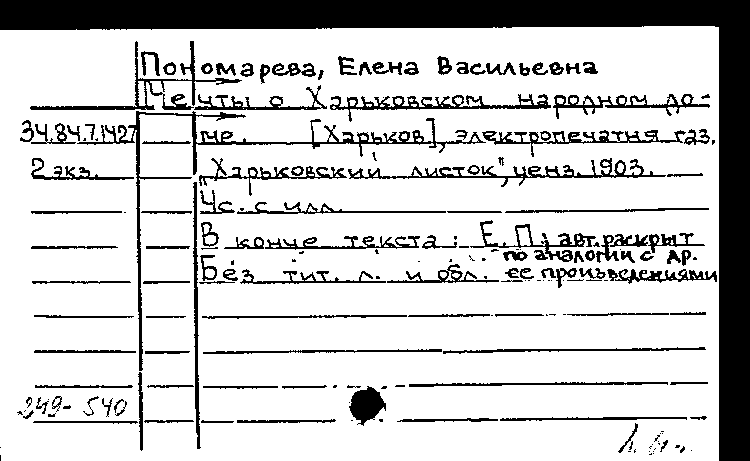 Пономарева, Елена Васильевна
Мечты о Харьковском народном до-
34.84.7.1427 ме. [Харьков], электропечатня газ.
2 экз. „Харьковский листок", ценз. 1903.
4с. с илл.
В конце текста: Е. П.; авт. раскрыт
по аналогии с др.
Без тит. л. и обл. ее произведениями
249-540